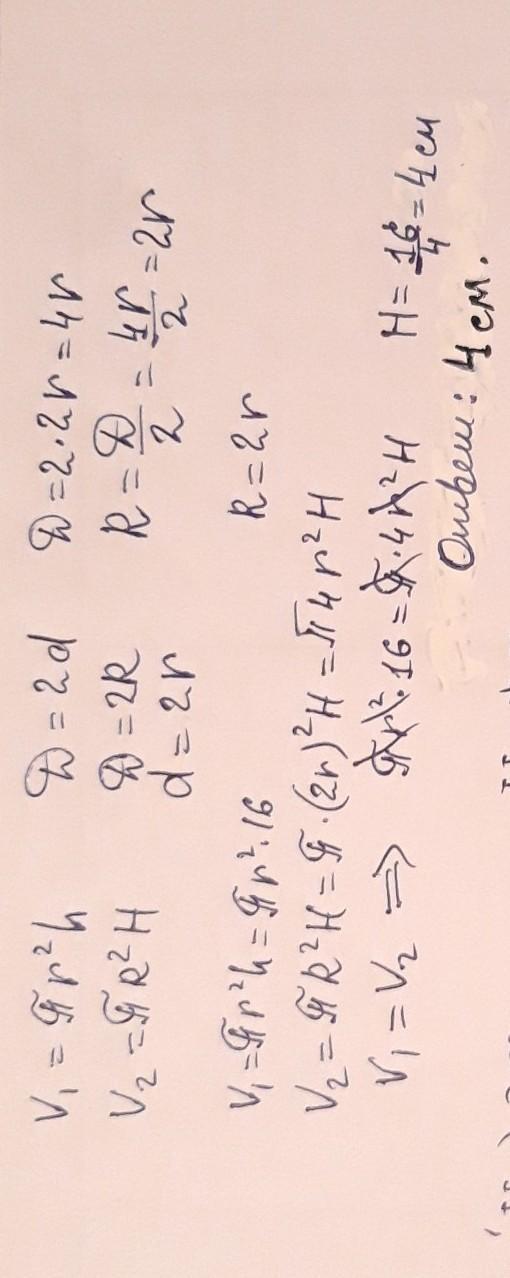 V₁ = πr²h   D = 2d   D = 2·2r = 4r
V₂ = πR²H   D = 2R   R = D/2 = 4r/2 = 2r
d = 2r
V₁ = πr²h = πr²·16   R = 2r
V₂ = πR²H = π·(2r)²H = π4r²H
V₁ = V₂ ⇒ πr²·16 = π·4r²H   H = 16/4 = 4 см
Ответ: 4 см.